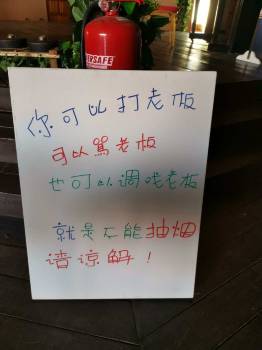 ERSAFE
你可以打老板
可以骂老板
也可以调戏老板
就是不能抽烟
请谅解！